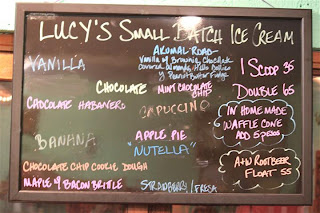 LUCY'S SMALL BATCH ICE CREAM
AKUMAL ROAD
VANILLA
Vanilla w/ Brownie, Chocolate
Covered Almonds,
y Peanut Butter Fudge
1 SCOOP 35
CHOCOLATE
MINT CHOCOLATE CHIP
DOUBLE 65
CHOCOLATE HABANERO
CAPUCCINO
IN HOMEMADE
WAFFLE CONE
ADD 5 PESOS
BANANA
APPLE PIE
"NUTELLA"
CHOCOLATE CHIP COOKIE DOUGH
A+W ROOTBEER
FLOAT 55
MAPLE y BACON BRITTLE
STRAWBERRY/FRESA